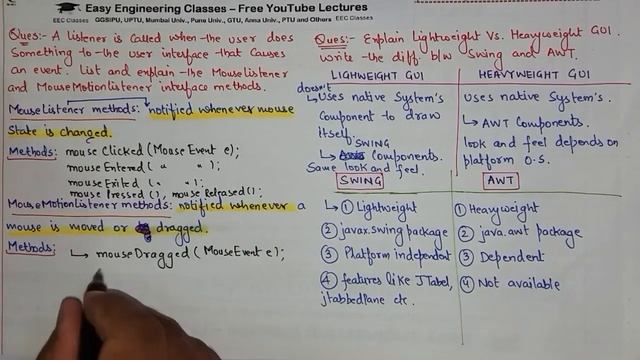 Easy Engineering Classes – Free YouTube Lectures
EEC Classes GGSIPU, UPTU, Mumbai Univ., Pune Univ., GTU, Anna Univ., PTU and Others EEC Classes
Ques:- A listener is called when the user does
Something to the user interface that causes
an event. List and explain the MouseListener
and MouseMotionListener interface methods.
MouseListener methods: notified whenever mouse
State is changed.
Methods: mouse Clicked (Mouse Event e);
mouse Entered ( " " );
mouse Exited ( " " );
mouse Pressed(), mouse Released();
MouseMotionListener methods: notified whenever a
mouse is moved or dragged.
Methods: ↳ mouseDragged (MouseEvent e);
Ques:- Explain Lightweight Vs. Heavyweight GUI.
Write the diff. b/w Swing and AWT.
LIGHWEIGHT GUI
doesn't
↳ Uses native System's
Component to draw
itself.
SWING
↳ Components.
Same look and feel.
HEAVYWEIGHT GUI
Uses native System's.
↳ AWT Components.
look and feel depends on
platform O.S.
SWING
↳ ① Lightweight
② javax.swing package
③ Platform independent
④ features like JTabel,
jtabbedPane etc.
AWT
① Heavyweight
② java.awt package
③ Dependent
④ Not available